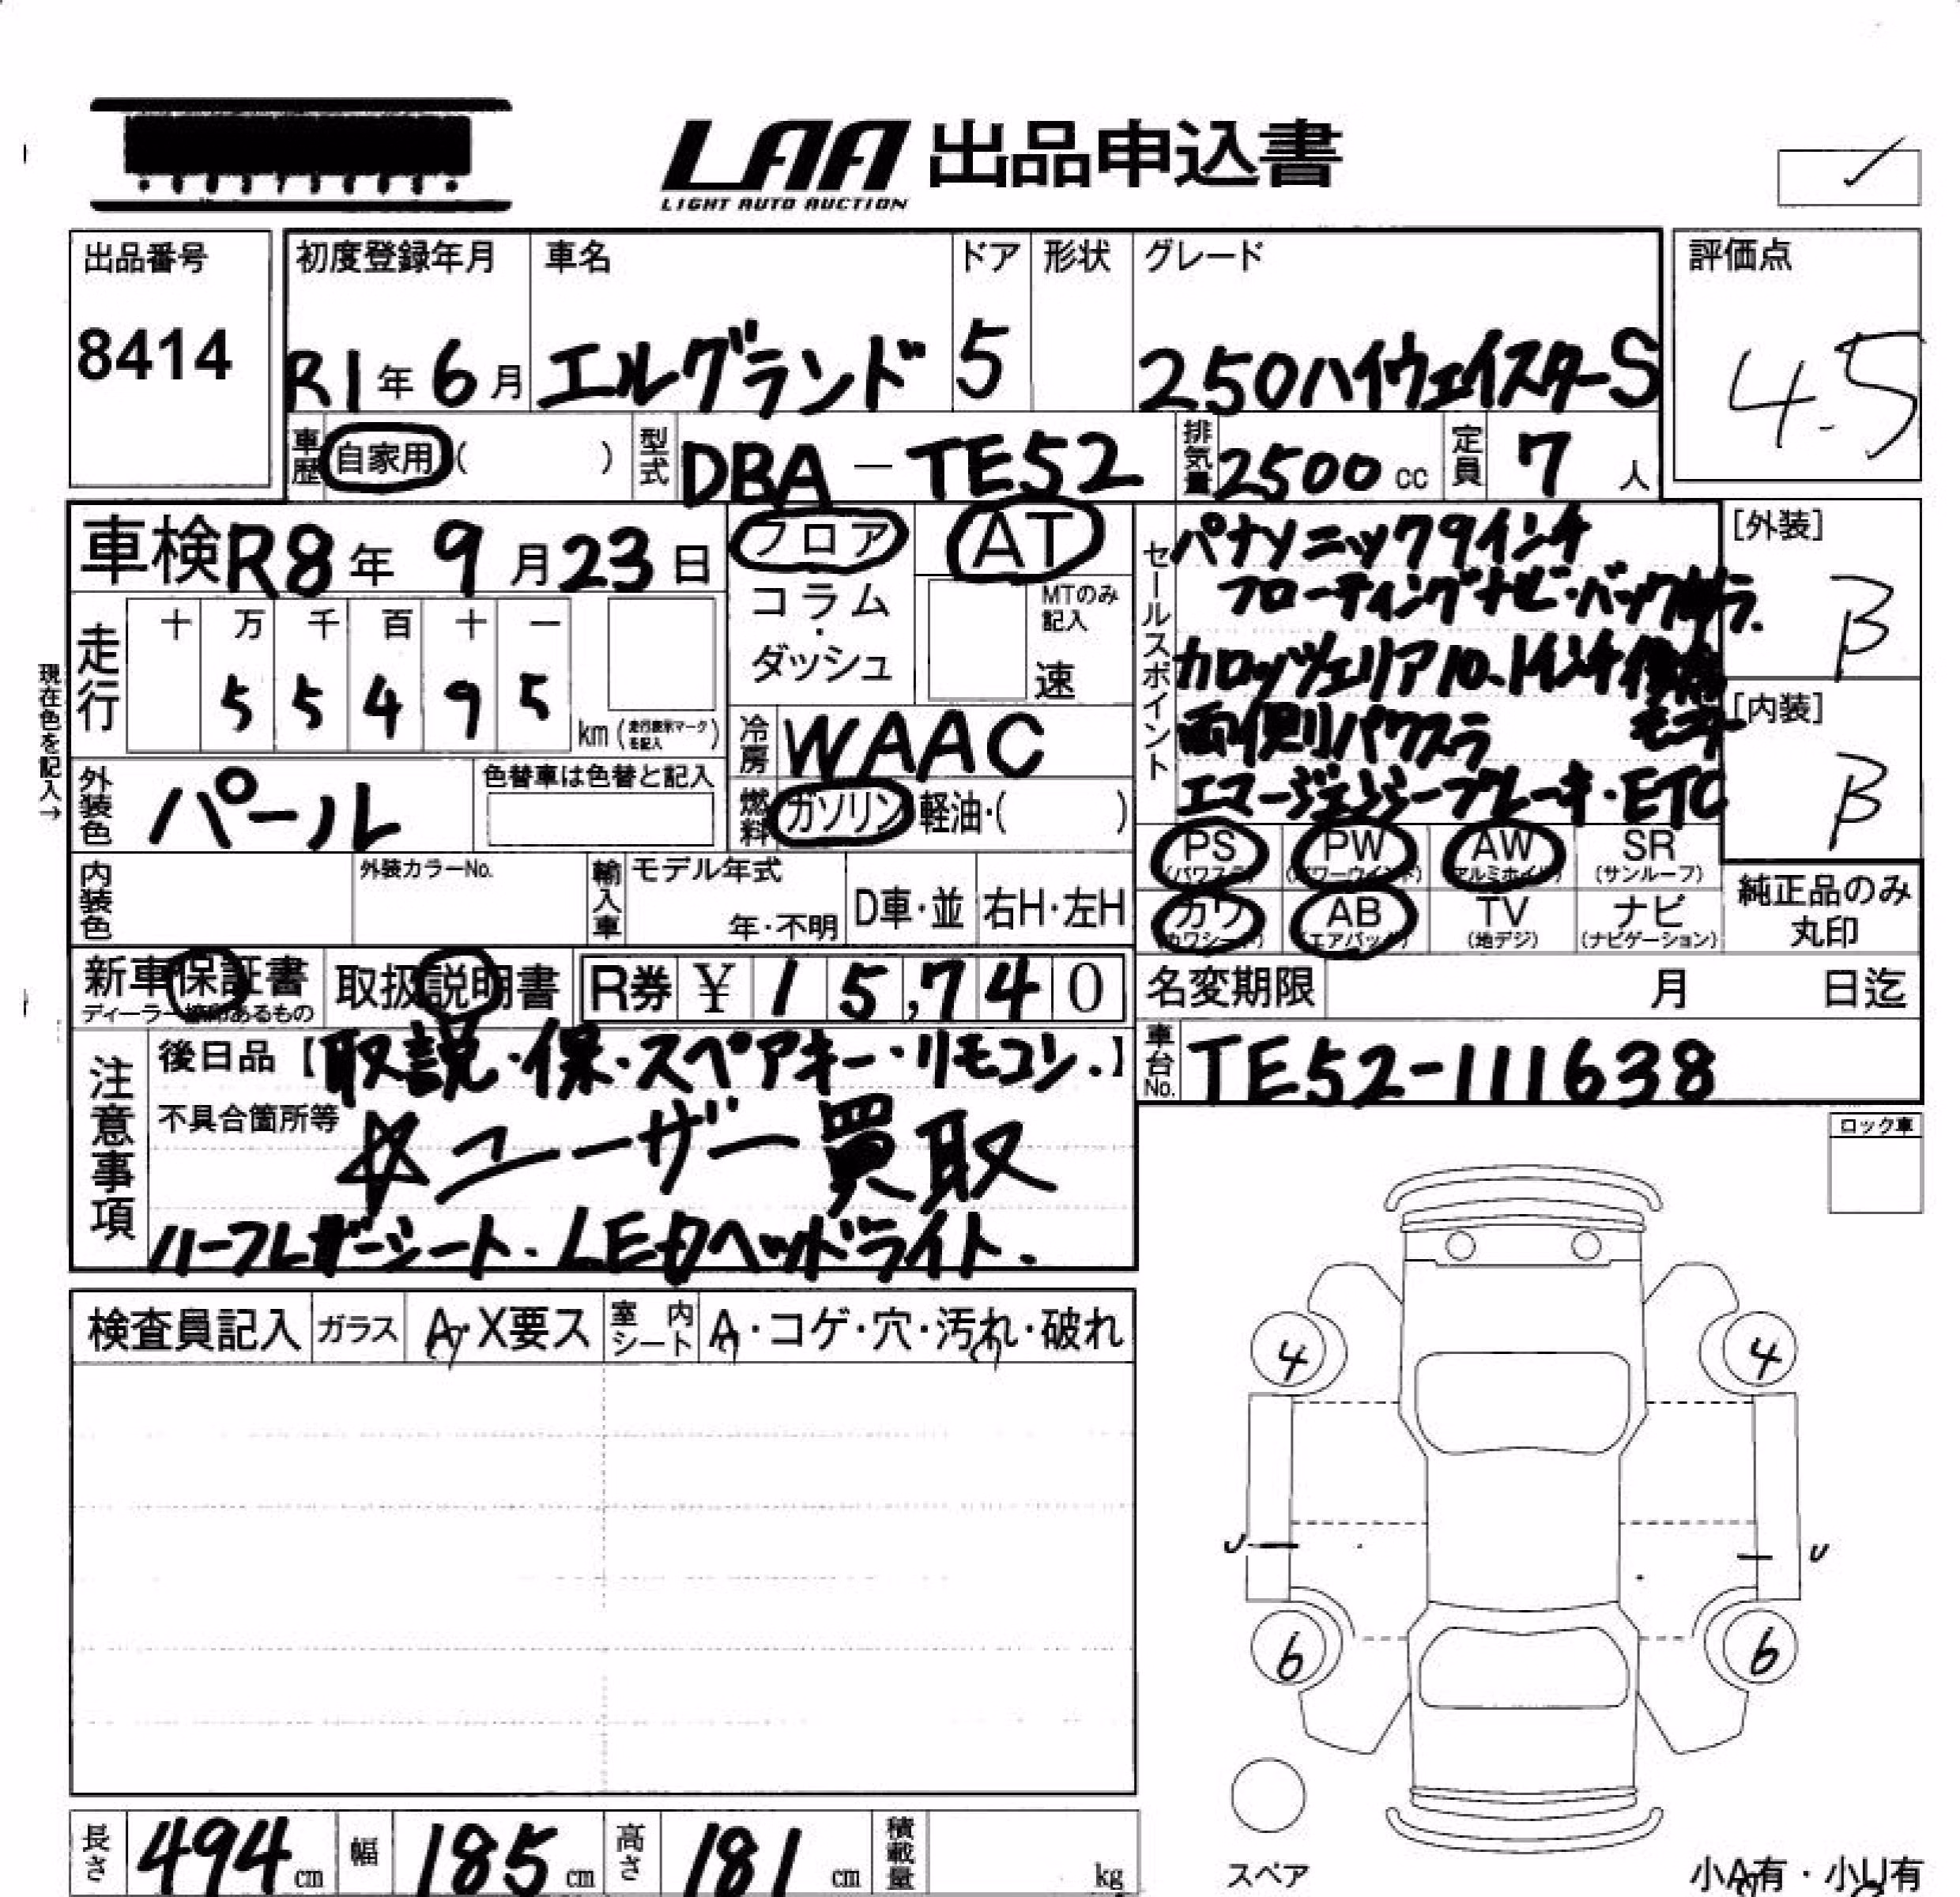 LAA 出品申込書
LIGHT AUTO AUCTION
出品番号
8414
初度登録年月
R1年6月
車名
エルグランド
ドア
5
形状
グレード
250ハイウェイスターS
評価点
4.5
車歴 自家用 ( )
型式 DBA-TE52
排気量 2500 cc
定員 7 人
車検 R8年9月23日
フロア
コラム
・
ダッシュ
AT
MTのみ記入
速
セールスポイント
パナソニック9インチ
フローティングナビ・バックカメラ.
カロッツェリア10.1インチ後席
両側パワスラ モニター
エマージェンシーブレーキ・ETC
[外装]
B
[内装]
B
現在色を記入→
走行
十 万 千 百 十 一
5 5 4 9 5
km (走行表示マークを記入)
冷房 WAAC
燃料 ガソリン・軽油・( )
外装色 パール
色替車は色替と記入
内装色
外装カラーNo.
輸入車
モデル年式
年・不明
D車・並
右H・左H
PS (パワステ)
PW (パワーウインド)
AW (アルミホイル)
SR (サンルーフ)
カワ (カワシート)
AB (エアバック)
TV (地デジ)
ナビ (ナビゲーション)
純正品のみ
丸印
新車保証書
ディーラー捺印あるもの
取扱説明書
R券 ¥ 15,740
名変期限 月 日迄
車台No. TE52-111638
注意事項
後日品【取説・保・スペアキー・リモコン.】
不具合箇所等
☆ユーザー買取
ハーフレザーシート・LEDヘッドライト.
ロック車
検査員記入
ガラス A・X要ス
室内シート A・コゲ・穴・汚れ・破れ
4 4
U U
6 6
スペア
長さ 494 cm
幅 185 cm
高さ 181 cm
積載量 kg
小A有・小U有